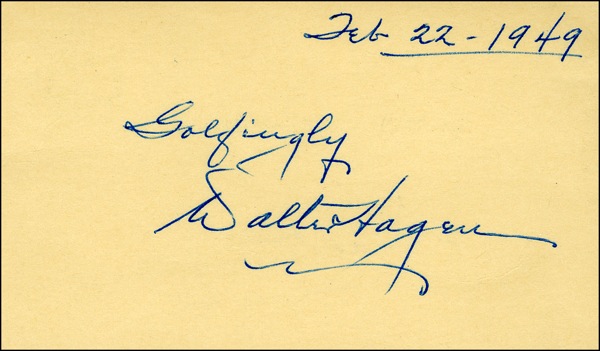 Feb 22-1949
Golfingly
Walter Hagen